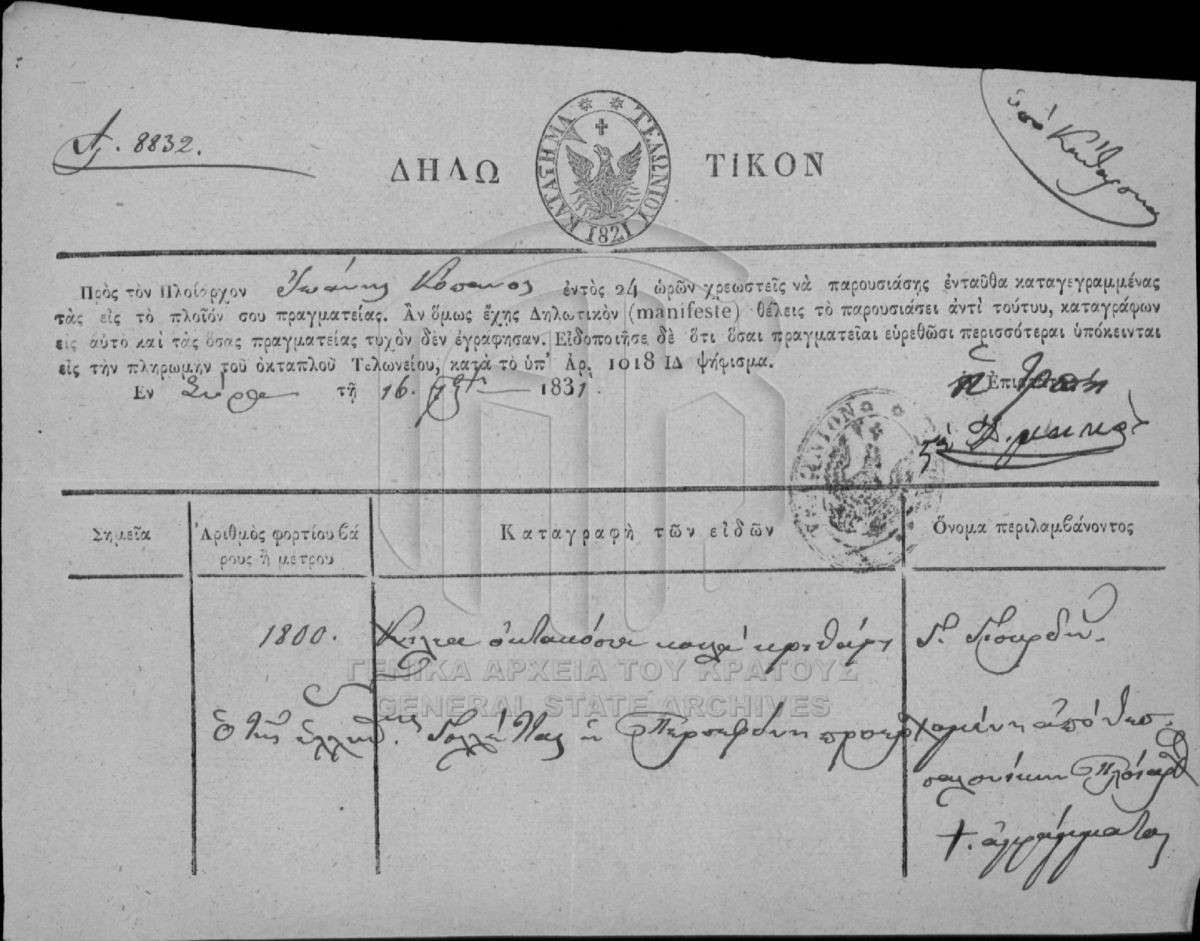 8832.
ὑπὸ
ΔΗΛΩ ΤΙΚΟΝ
ΚΑΤΑΣΤΗΜΑ ΤΕΛΩΝΙΟΥ 1821
Πρὸς τὸν Πλοίαρχον Ἰωάννης ἐντὸς 24 ὡρῶν χρεωστεῖς νὰ παρουσιάσῃς ἐνταῦθα καταγεγραμμένας
τὰς εἰς τὸ πλοῖόν σου πραγματείας. Ἂν ὅμως ἔχῃς Δηλωτικὸν (manifeste) θέλεις τὸ παρουσιάσει ἀντὶ τούτυυ, καταγράφων
εἰς αὐτὸ καὶ τὰς ὅσας πραγματείας τυχὸν δὲν ἐγράφησαν. Εἰδοποιήσε δὲ ὅτι ὅσαι πραγματεῖαι εὑρεθῶσι περισσότεραι ὑπόκεινται
εἰς τὴν πληρωμὴν τοῦ ὀκταπλοῦ Τελωνείου, κατὰ τὸ ὑπ' Ἀρ. 1018 ΙΔ ψήφισμα.
Εν τῇ 16 1831
ΤΕΛΩΝΙΟΝ
Σημεῖα
Ἀριθμὸς φορτίου βά
ρους ἢ μέτρου
Καταγραφὴ τῶν εἰδῶν
Ὄνομα περιλαμβάνοντος
1800. Χίλια ὀκτακόσια κοιλὰ κριθάρι
ΓΕΝΙΚΑ ΑΡΧΕΙΑ ΤΟΥ ΚΡΑΤΟΥΣ
GENERAL STATE ARCHIVES
τῆς ἡ Περσεφόνη προερχομένη ἀπὸ Θεσ
σαλονίκην
ἀγράμματος